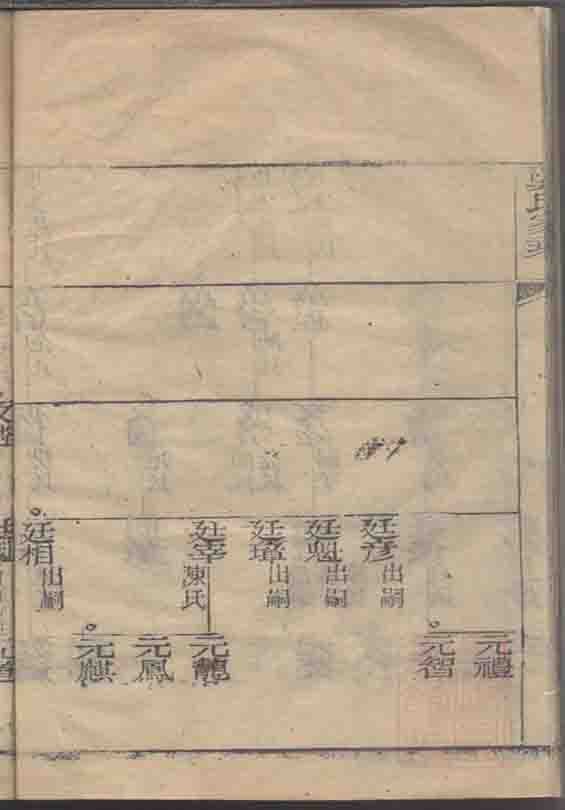 元禮
元智
廷彥
出嗣
廷魁
出嗣
廷璋
出嗣
廷宰
陳氏
元龍
元鳳
元麒
廷相
出嗣